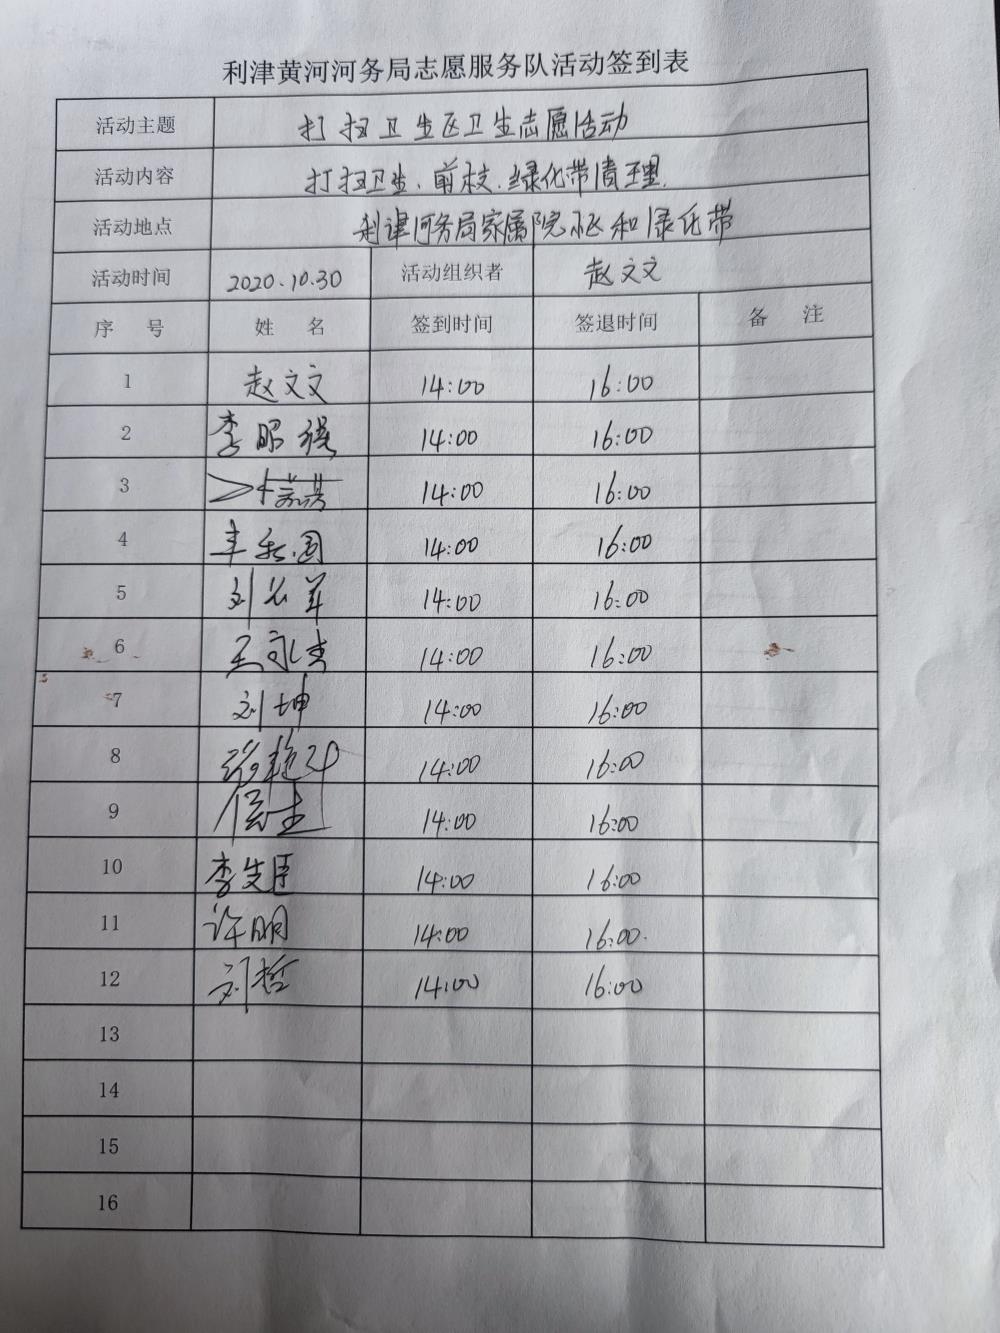 利津黄河河务局志愿服务队活动签到表
活动主题 打扫卫生区卫生志愿活动
活动内容 打扫卫生、剪枝、绿化带清理
活动地点 利津河务局家属院 和绿化带
活动时间 2020.10.30 活动组织者 赵文文
序 号 姓 名 签到时间 签退时间 备 注
1 赵文文 14:00 16:00
2 李昭 14:00 16:00
3 14:00 16:00
4 14:00 16:00
5 刘 14:00 16:00
6 王永 14:00 16:00
7 刘坤 14:00 16:00
8 14:00 16:00
9 14:00 16:00
10 李 臣 14:00 16:00
11 许明 14:00 16:00.
12 刘哲 14:00 16:00
13
14
15
16